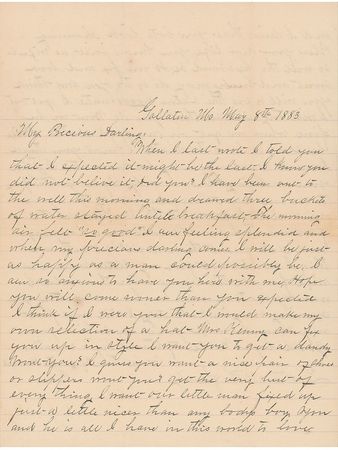 Gallatin Mo May 8th 1883
My Precious Darling:
When I last wrote I told you
that I expected it might be the last. I know you
did not believe it, did you? I have been out to
the well this morning and drawed three buckets
of water stayed until breakfast. The morning
air felt "so good" I am feeling splendid and
when my precious darling comes I will be just
as happy as a man could possibly be. I
am so anxious to have you here with me Hope
you will come sooner than you expected
I think if I were you that I would make my
own selection of a hat Mrs Kenny can fix
you up in style I want you to get a dandy
Wont you? I guess you want a nice pair of shoes
or slippers wont you? get the very best of
every thing, I want our little man fixed up
just a little nicer than any bodys boy
and he is all I have in this world to love